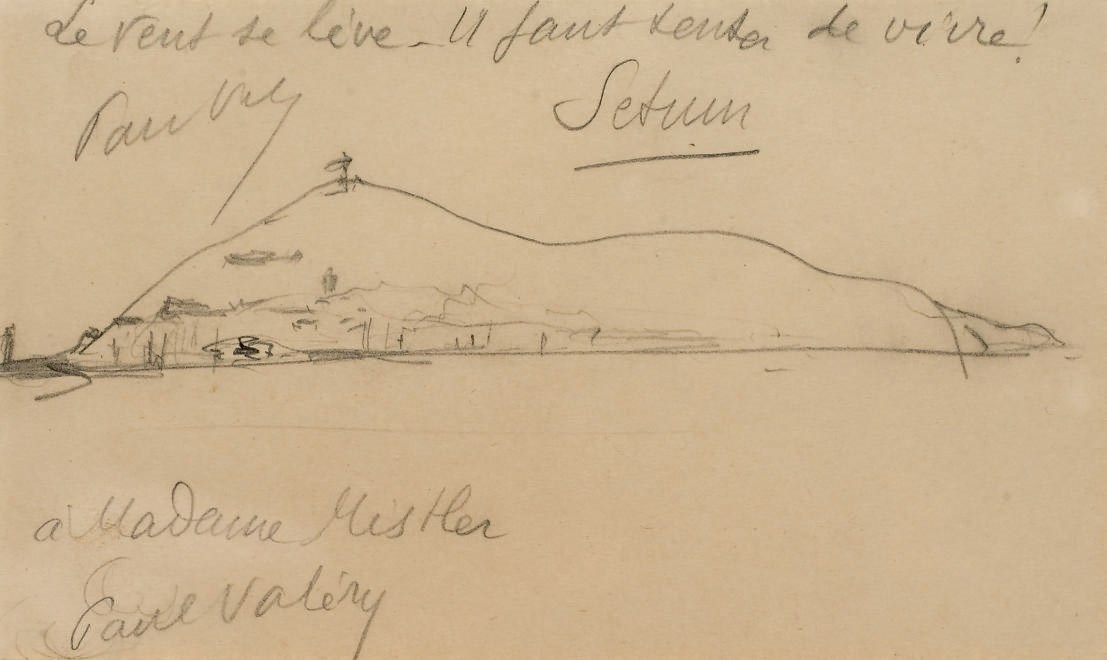 Le vent se lève - Il faut tenter de vivre!
Paul Valéry
Setium
à Madame Mistler
Paul Valéry